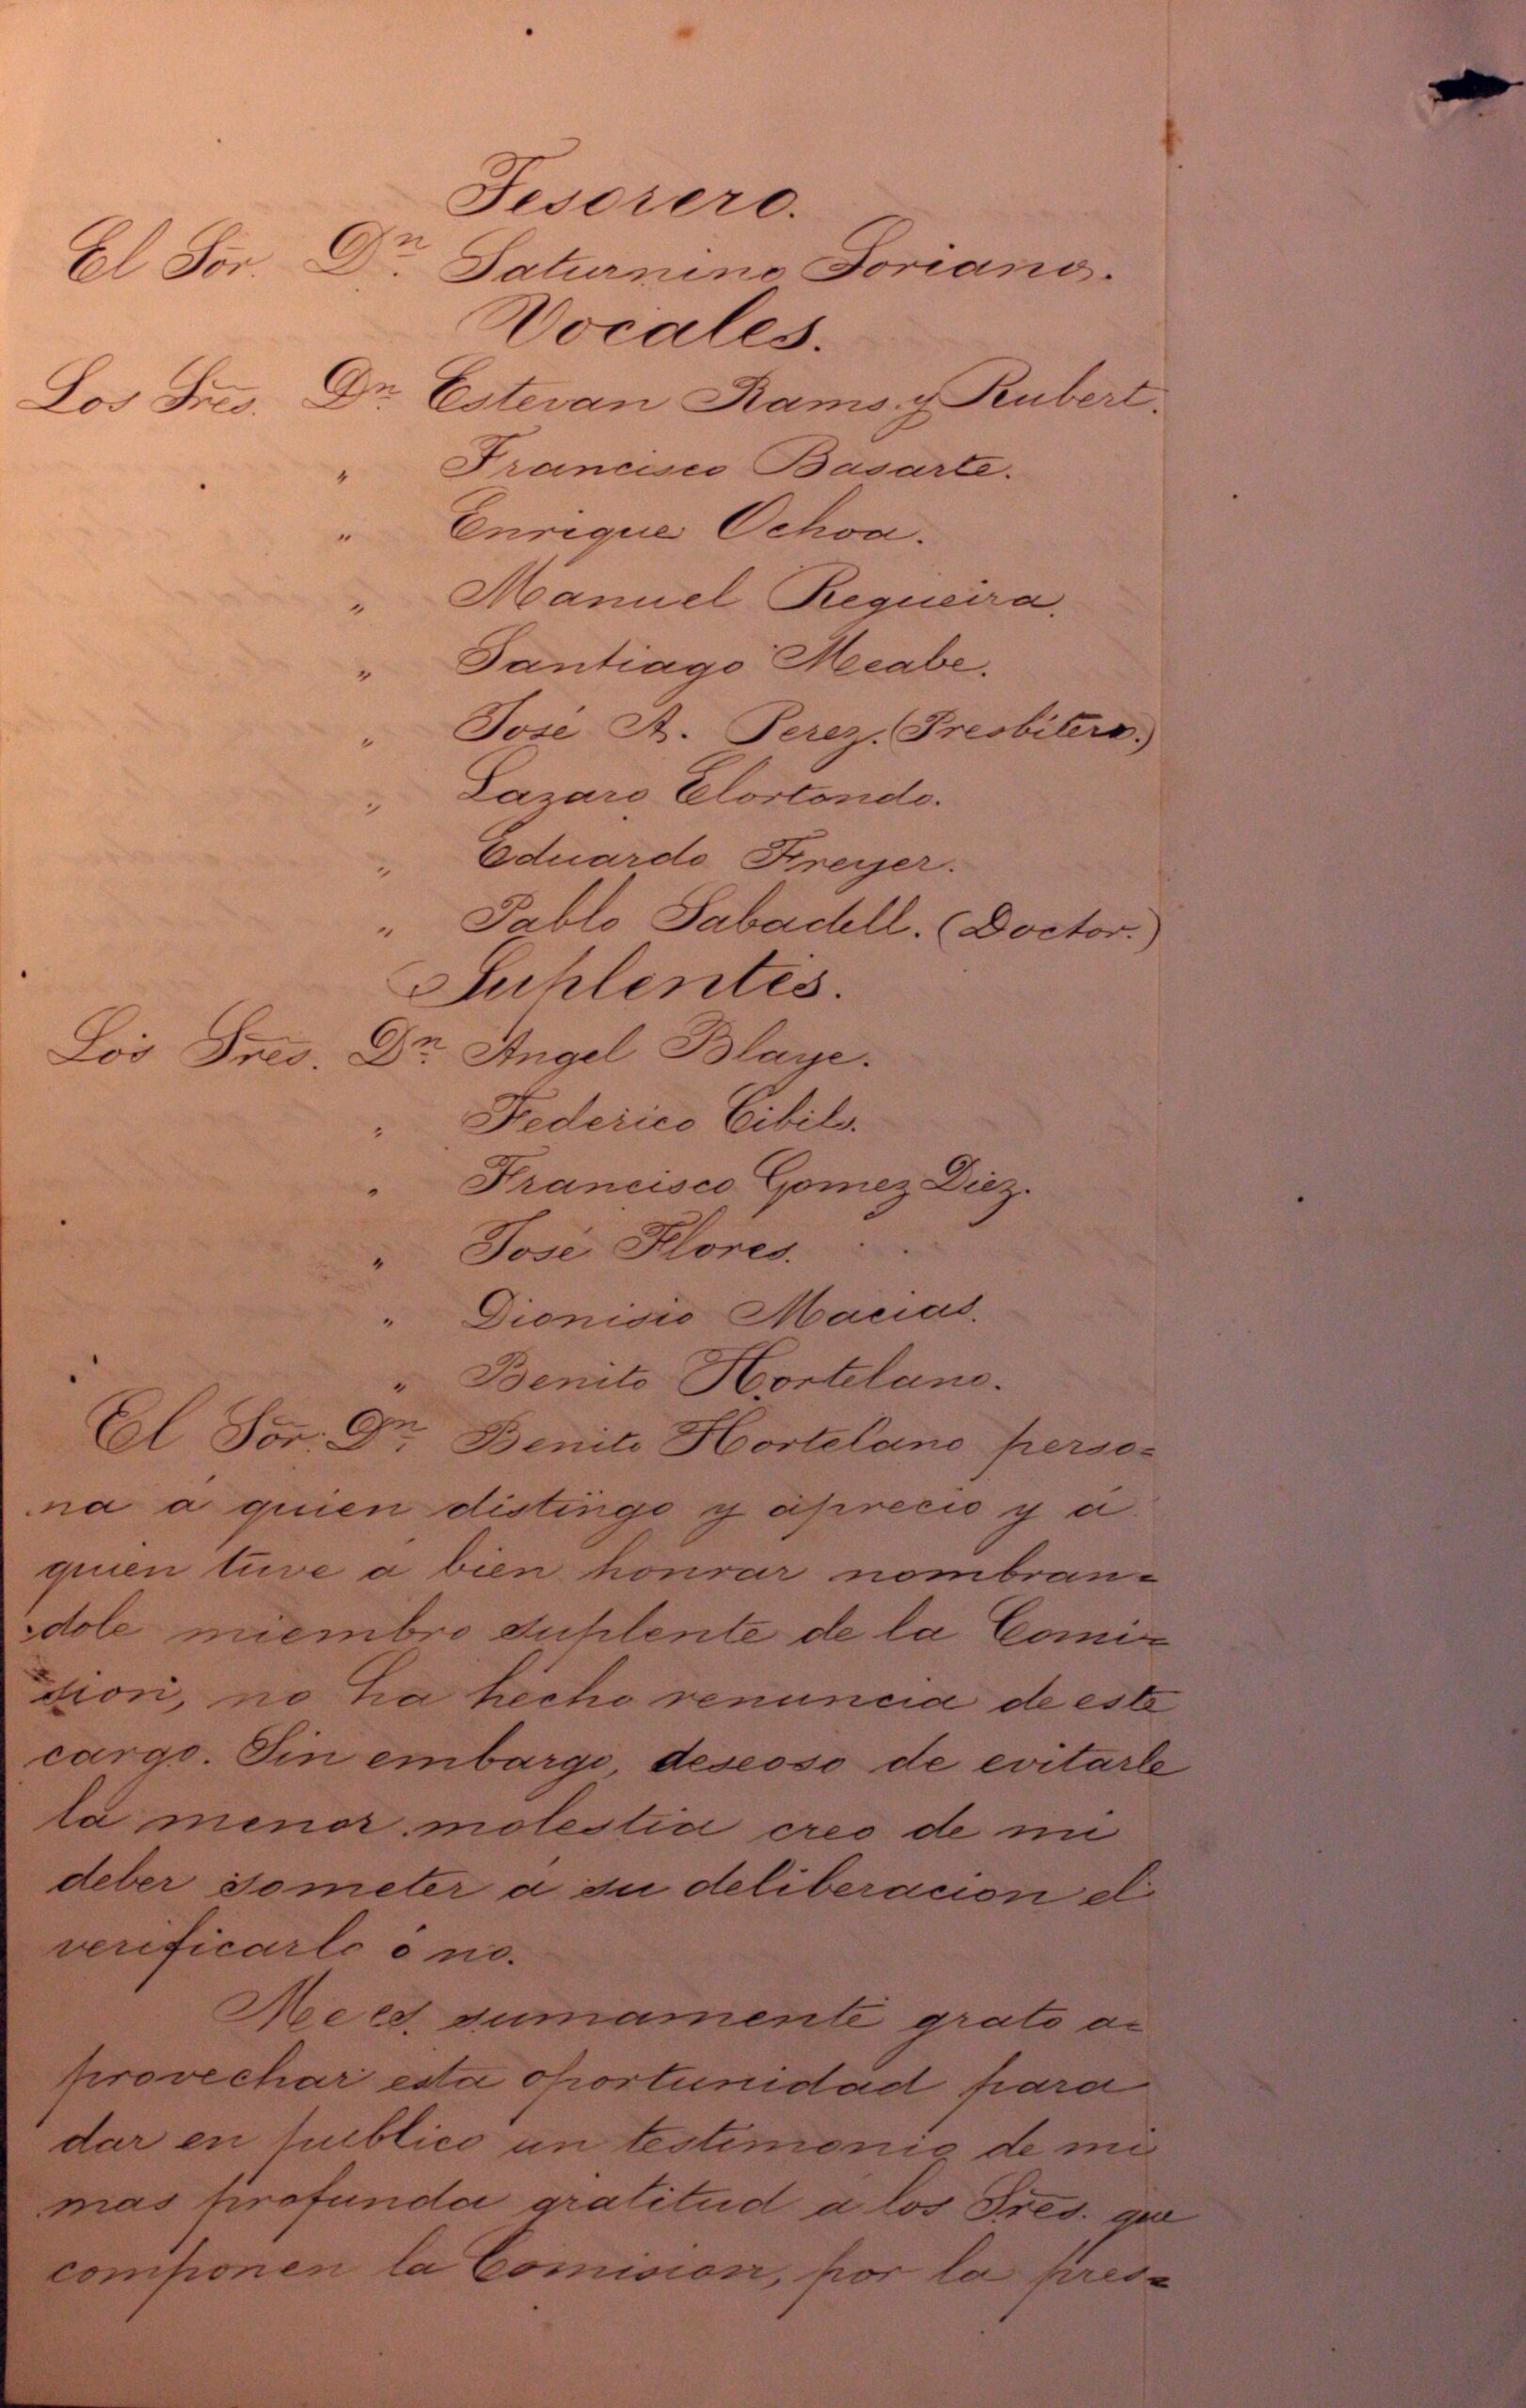 Tesorero.
El Sor. Dn. Saturnino Soriano.
Vocales.
Los Sres. Dn. Estevan Rams y Rubert.
" Francisco Basarte.
" Enrique Ochoa.
" Manuel Regueira.
" Santiago Meabe.
" José A. Perez. (Presbitero.)
" Lazaro Elortondo.
" Eduardo Freyer.
" Pablo Sabadell. (Doctor.)
Suplentes.
Los Sres. Dn. Angel Blaye.
" Federico Cibils.
" Francisco Gomez Diez.
" José Flores.
" Dionisio Macias.
" Benito Hortelano.
El Sor. Dn. Benito Hortelano perso=
na á quien distingo y aprecio y á
quien tuve a bien honrar nombran=
dole miembro suplente de la Comi=
sion, no ha hecho renuncia de este
cargo. Sin embargo, deseoso de evitarle
la menor molestia creo de mi
deber someter á su deliberacion el
verificarlo ó no.
Me es sumamente grato a=
provechar esta oportunidad para
dar en publico un testimonio de mi
mas profunda gratitud a los Sres. que
componen la Comision, por la pres=